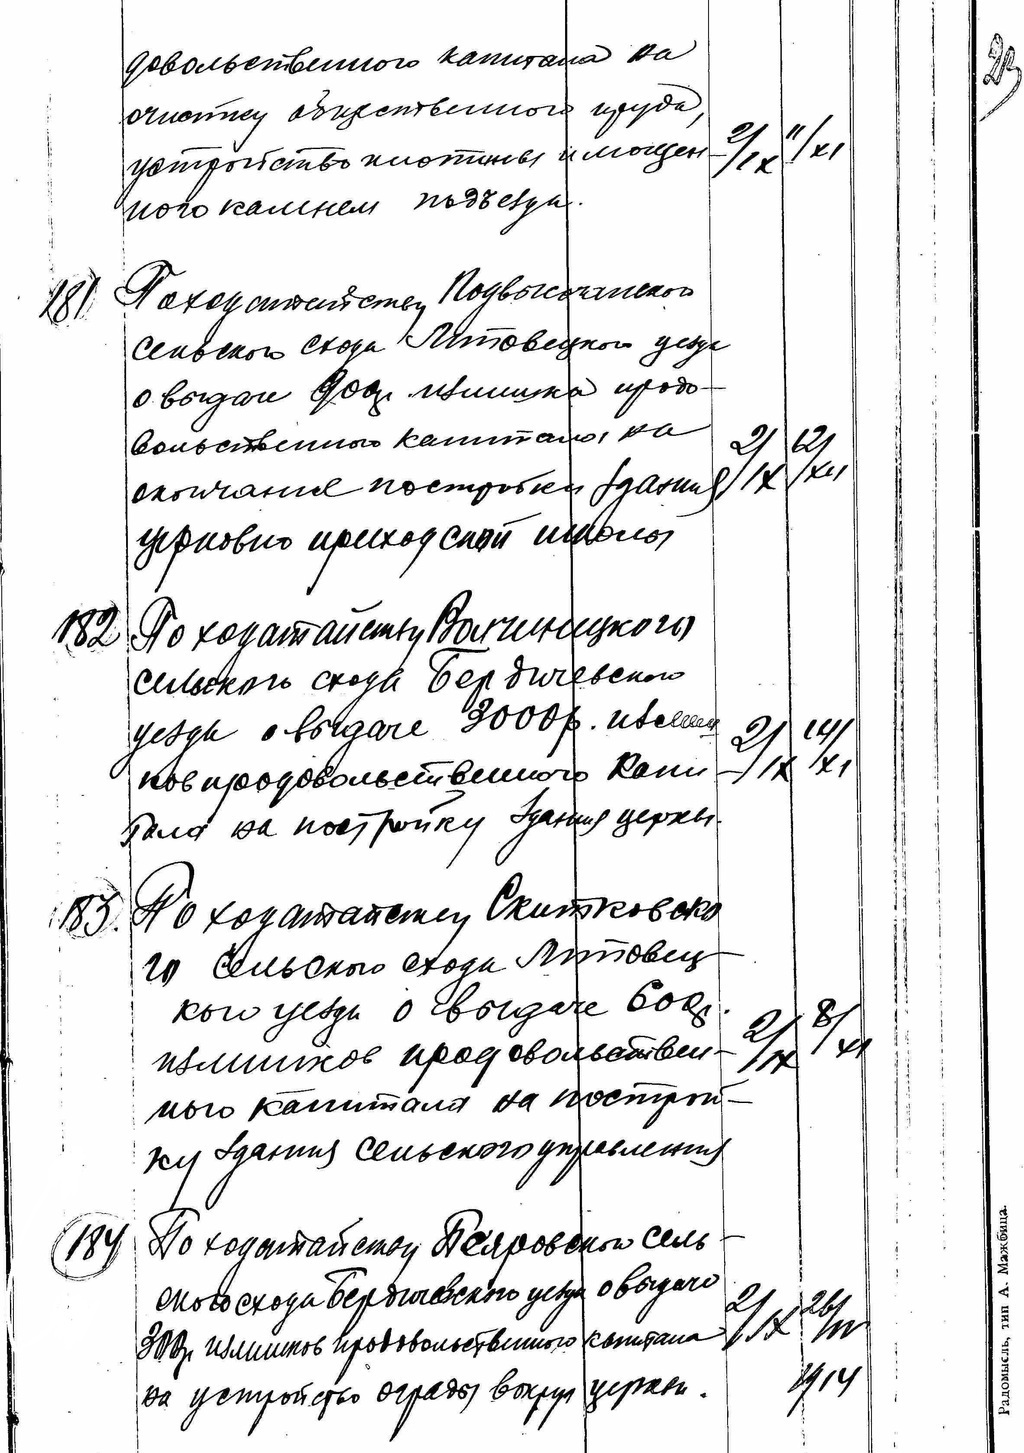 довольственного капитала на
очистку общественного пруда,
устройство плотины и мощен- 2/IX 11/XI
ного камнем подъезда.
181 По ходатайству Подвысочанского
сельского схода Липовецкого уезда
о выдаче 900р. излишка продо-
вольственного капитала на 2/IX 12/XII
окончание постройки здания
церковно приходской школы
182 По ходатайству Волчинецкого
сельского схода Бердичевского
уезда о выдаче 3000р. излиш
ков продовольственного капи- 2/IX 14/XI
тала на постройку здания церкви.
183. По ходатайству Скитковско
го сельского схода Липовец-
кого уезда о выдаче 600р.
излишков продовольствен- 2/IX 8/XI
ного капитала на построй-
ку здания сельского управления
184 По ходатайству сель-
ского схода Бердичевского уезда о выдаче
300р. излишков продовольственного капитала 2/IX 26/III
на устройство ограды вокруг церкви. 1914
Радомысль, тип А. Мажбица.